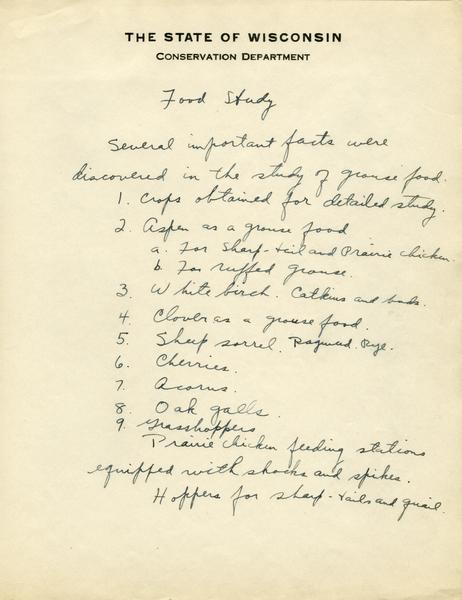 THE STATE OF WISCONSIN
CONSERVATION DEPARTMENT
Food Study
Several important facts were
discovered in the study of grouse food.
1. Crops obtained for detailed study.
2. Aspen as a grouse food
a. For Sharp-tail and Prairie chicken.
b. For ruffed grouse.
3. White birch. Catkins and buds.
4. Clover as a grouse food.
5. Sheep sorrel. Ragweed. Rye.
6. Cherries.
7. Acorns.
8. Oak galls.
9. Grasshoppers
Prairie chicken feeding stations
equipped with shocks and spikes.
Hoppers for sharp-tails and quail.